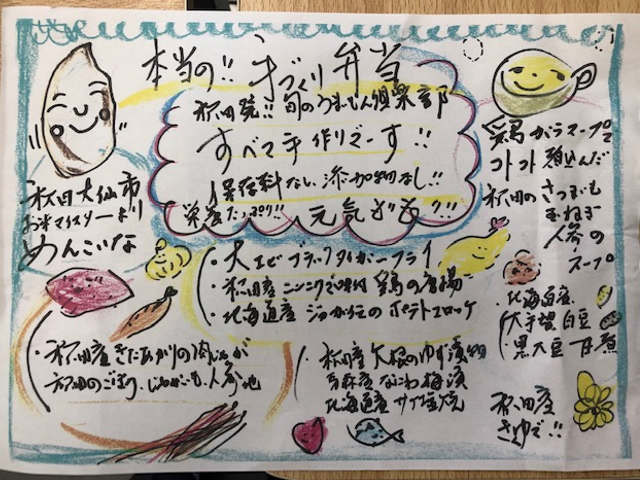 本当の!! 手づくり弁当
秋田発!! 旬のうまいもん倶楽部
すべて手作りでーす!!
保存料なし 添加物なし!!
栄養たっぷり!! 元気
秋田大仙市
お米マイスターより
めんこいな
鶏ガラスープで
コトコト煮込んだ
秋田のさつまいも
玉ねぎ
人参の
スープ
・大エビブラックタイガーフライ
・秋田産ニンニク 鶏の唐揚
・北海道産 じゃが伝のポテトコロッケ
・北海道産
大手望白豆
黒大豆 甘煮
・秋田産きたあかりの肉じゃが
秋田のごぼう、じゃがいも、人参他
秋田産大根のゆず漬物
青森産なにわ梅漬
北海道産 サケ塩焼
秋田産
きゅ